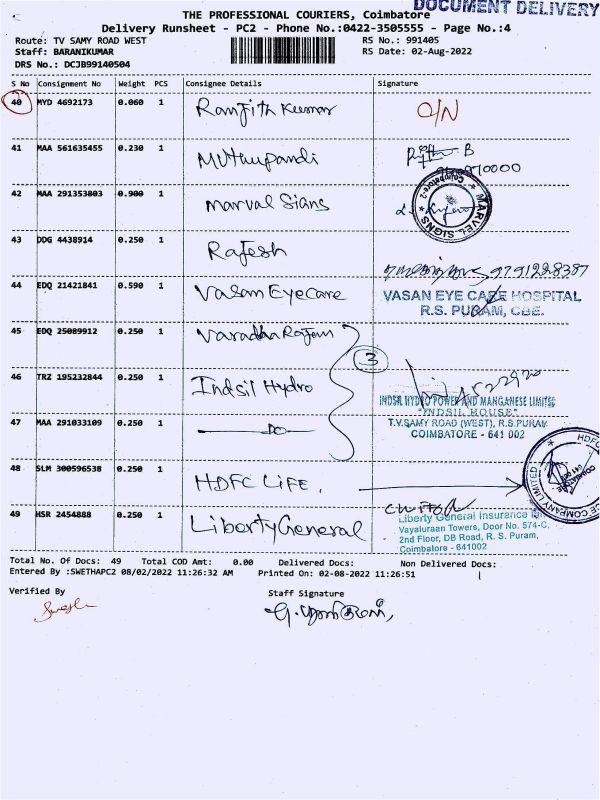 DOCUMENT DELIVERY
THE PROFESSIONAL COURIERS, Coimbatore
Delivery Runsheet - PC2 - Phone No.:0422-3505555 - Page No.:4
Route: TV SAMY ROAD WEST
RS No.: 991405
Staff: BARANIKUMAR
RS Date: 02-Aug-2022
DRS No.: DCJB99140504
S No Consignment No Weight PCS Consignee Details Signature
40 MYD 4692173 0.060 1 Ranjith Kumar O/N
41 MAA 561635455 0.230 1 Muthupandi
42 MAA 291353803 0.900 1 Marval Sians
MARVEL SIGNS
Coimbatore-2
43 DDG 4438914 0.250 1 Rajesh
9791228387
44 EDQ 21421841 0.590 1 Vasan Eyecare
VASAN EYE CARE HOSPITAL
R.S. PURAM, CBE.
45 EDQ 25089912 0.250 1 Varadha Rajan
3
46 TRZ 195232844 0.250 1 Indsil Hydro
INDSIL HYDRO POWER AND MANGANESE LIMITED
"INDSIL HOUSE"
47 MAA 291033109 0.250 1 DO
T.V.SAMY ROAD (WEST), R.S.PURAM
COIMBATORE - 641 002
48 SLM 300596538 0.250 1 HDFC LIFE.
49 HSR 2454888 0.250 1 Liberty General
Liberty General Insurance
Vayaluraan Towers, Door No. 574-C,
2nd Floor, DB Road, R. S. Puram,
Coimbatore - 641002
Total No. Of Docs: 49 Total COD Amt: 0.00 Delivered Docs: Non Delivered Docs:
Entered By :SWETHAPC2 08/02/2022 11:26:32 AM Printed On: 02-08-2022 11:26:51
Verified By
Staff Signature